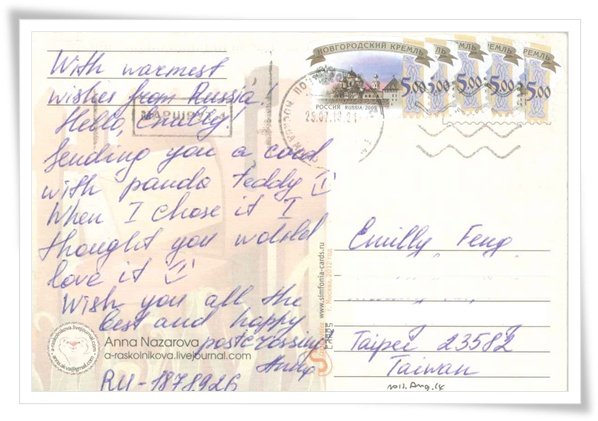 With warmest
wishes from Russia!
Hello, Emilly
Sending you a card
with panda teddy
When I chose it I
thought you would
love it
Wish you all the
best and happy
postcrossing
Anna
RU-1878926
МАРШРУТ
Anna Nazarova
a-raskolnikova.livejournal.com
НОВГОРОДСКИЙ КРЕМЛЬ
РОССИЯ RUSSIA 2009
5,00
5,00
5,00
5,00
5,00
www.simfonia-cards.ru
CARDS
Emilly Feng
Taipei 23582
Taiwan
2012.Aug.14